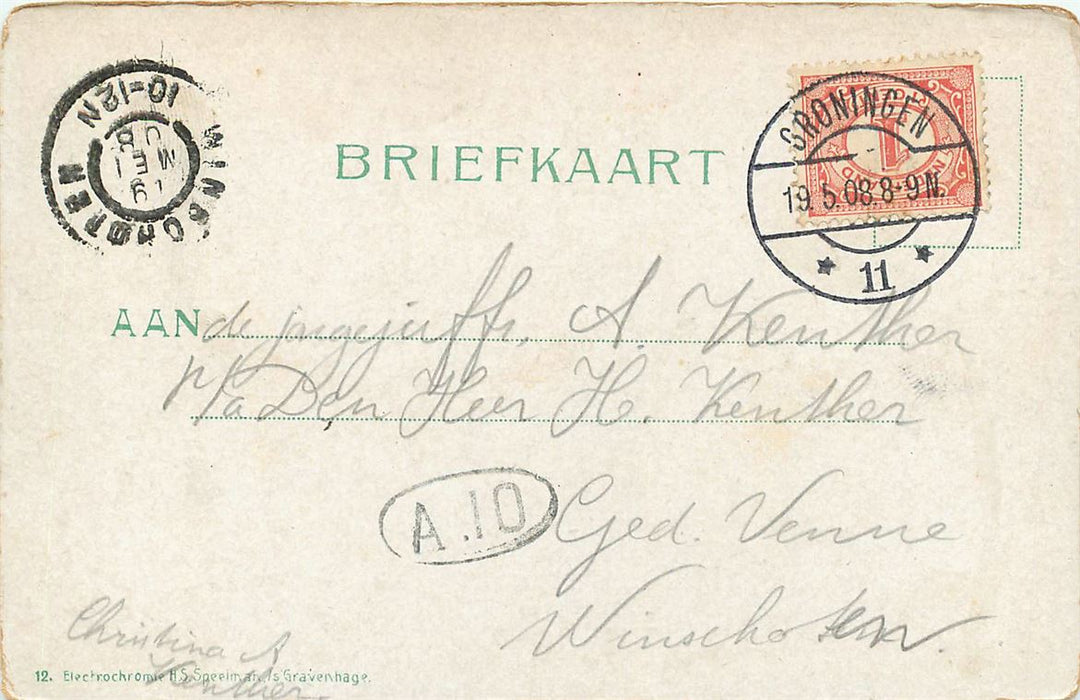 BRIEFKAART
GRONINGEN
19.5.08.8-9N.
11
WINSCHOTEN
10-12N
19
MEI
08
AAN de jongejuffr. A. Kenther
p/a Den Heer H. Kenther
A.10
Ged. Venne
Winschoten.
Christina A
Kenther.
12. Electrochromie H.S. Speelman, 's Gravenhage.